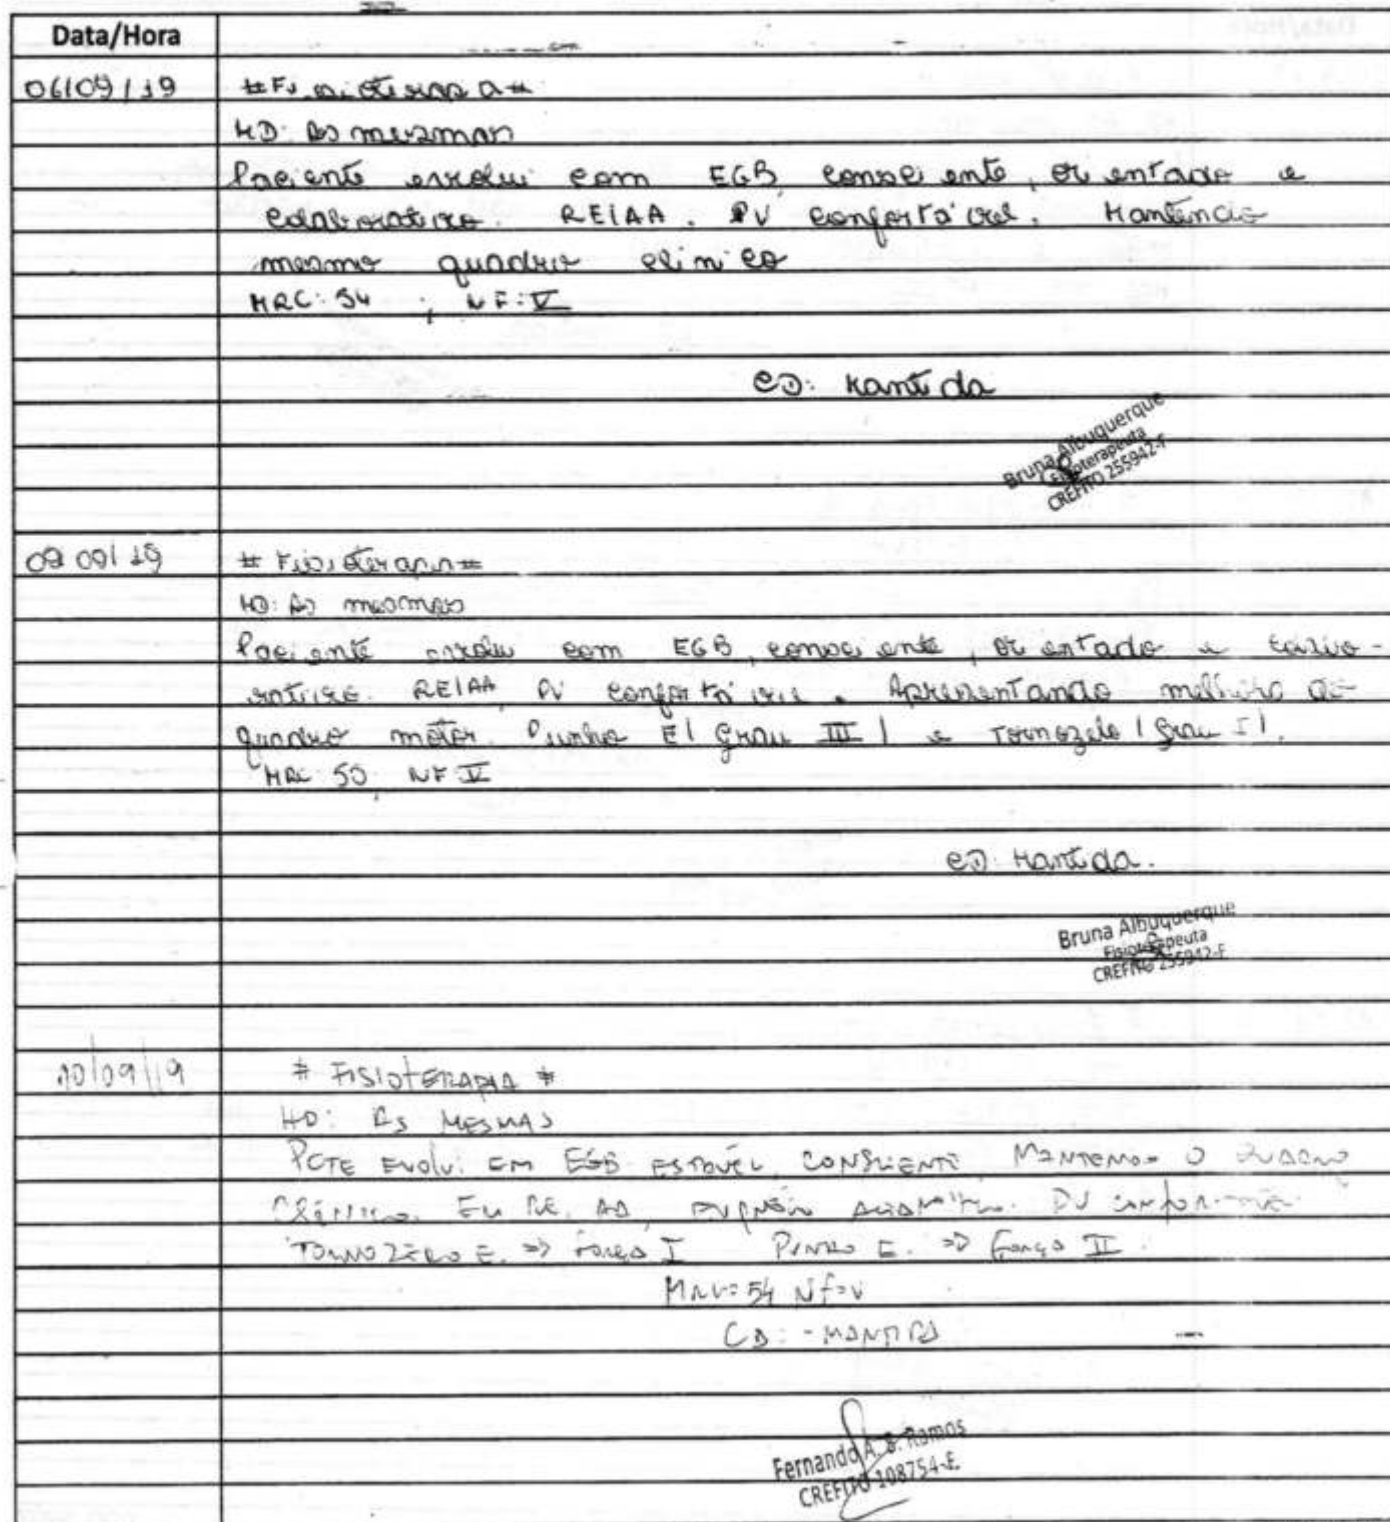 Data/Hora
06/09/19 #Fisioterapia#
HD: As mesmas
Paciente evolui com EGB, consciente, orientado e
colaborativo. REIAA. PV confortável. Mantendo
mesmo quadro clínico
MRC: 54 ; NF: V
CD: Mantida
Bruna Albuquerque
Fisioterapeuta
CREFITO 255942-F
09 09/19 # Fisioterapia #
HD: As mesmas
Paciente evolui com EGB, consciente, orientado e
REIAA PV confortável. Apresentando melhora do
quadro motor. Punho E (Grau III) e Tornozelo (Grau I).
MRC 50, NF V
CD: Mantida.
Bruna Albuquerque
Fisioterapeuta
CREFITO 255942-F
10/09/19 # FISIOTERAPIA #
HD: AS MESMAS
PCTE EVOLUI EM EGB ESTÁVEL, CONSCIENTE, MANTENDO O QUADRO
CLÍNICO. EM RE, AA, PV
TORNOZELO E. => FORÇA I PUNHO E. => FORÇA II.
MRC=54 NF=V
CD: - MANTIDA
Fernando A. S. Ramos
CREFITO 108754-E.